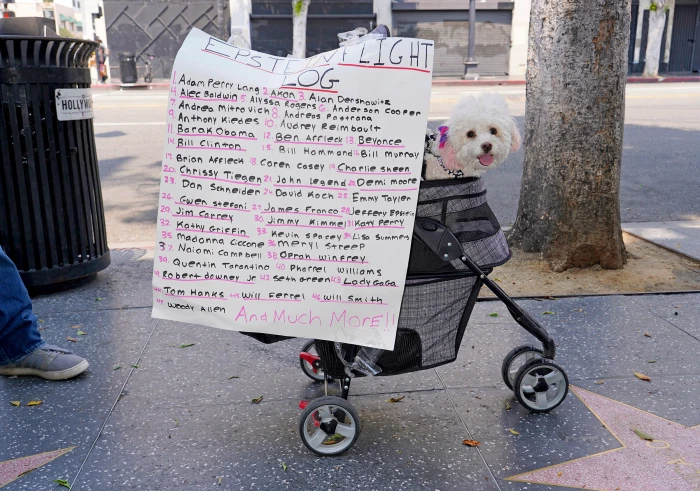 EPSTEIN FLIGHT
LOG
1 Adam Perry Lang 2 AKON 3 Alan Dershowitz
4 Alec Baldwin 5 Alyssa Rogers 6 Anderson Cooper
7 Andrea Mitrovich 8 Andreas Pastrana
9 Anthony Kiedes 10 Audrey Reimbault
11 Barak Obama 12 Ben Affleck 13 Beyonce
14 Bill Clinton 15 Bill Hammond 16 Bill Murray
17 Brian Affleck 18 Caren Casey 19 Charlie sheen
20 Chrissy Tiegen 21 John legend 22 Demi moore
23 Dan Schneider 24 David Koch 25 Emmy Tayler
26 Gwen stefani 27 James Franco 28 Jeffery Epstein
29 Jim Carrey 30 Jimmy Kimmel 31 Katy Perry
32 Kathy Griffin 33 Kevin spacey 34 Lisa Summers
35 Madonna Ciccone 36 Meryl Streep
37 Naiomi Campbell 38 Oprah winfrey
39 Quentin Tarantino 40 Pharrel Williams
41 Robert downey Jr 42 Seth Green 43 Lady Gaga
44 Tom Hanks 45 Will Ferrel 46 Will Smith
Woody Allen And Much More!!
HOLLYW